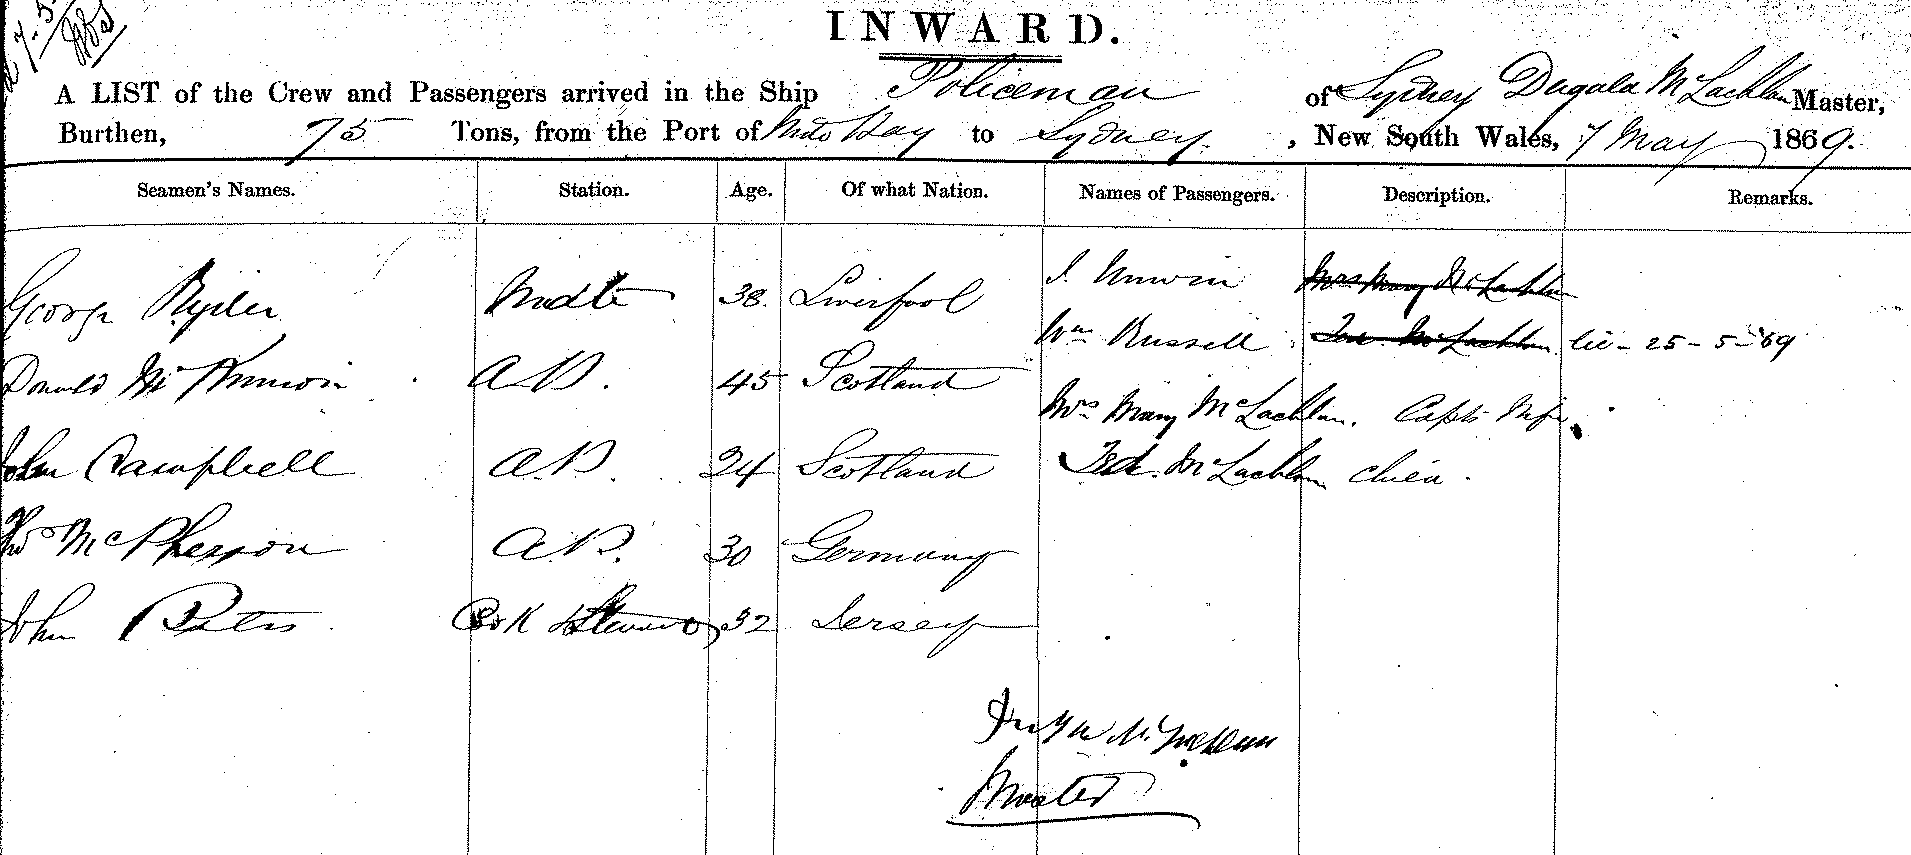 7-5-
INWARD.
A LIST of the Crew and Passengers arrived in the Ship Policeman of Sydney Dugald McLachlan Master,
Burthen, 75 Tons, from the Port of Bay to Sydney, New South Wales, 7 May 1869.
Seamen's Names. Station. Age. Of what Nation. Names of Passengers. Description. Remarks.
George Ryder Mate 38 Liverpool J. Unwin Mrs Mary McLachlan
Wm Russell Fred McLachlan lic - 25-5-69
Donald McKinnon A.B. 45 Scotland
Mrs Mary McLachlan. Capts Wife
John Campbell A.B. 24 Scotland Fred. McLachlan child.
Thos McPherson A.B. 30 Germany
John Peters Cook & Steward 32 Jersey
McLachlan
Master